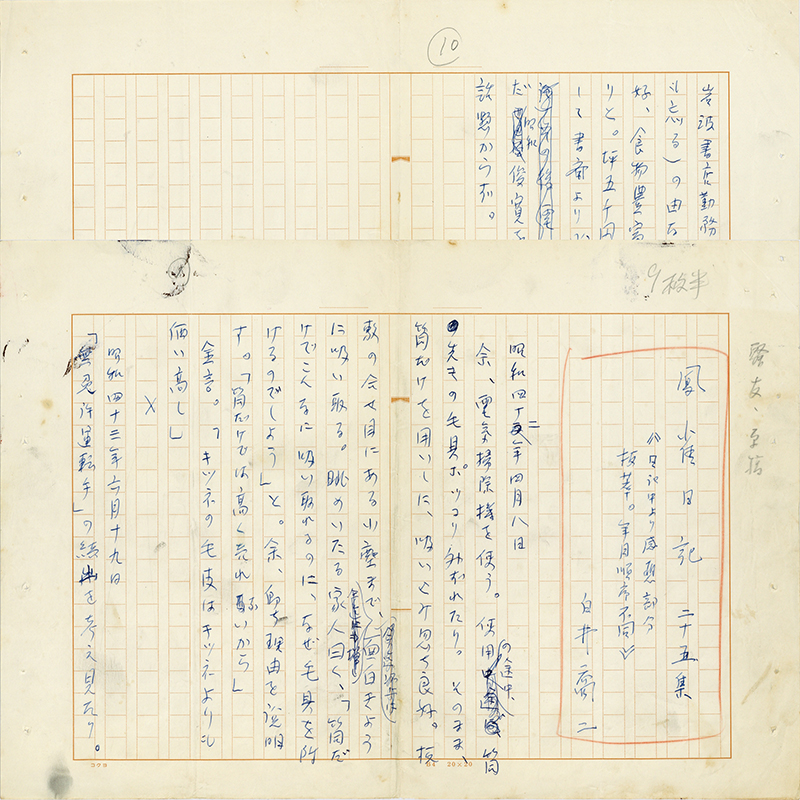 10
岩波書店勤務
(忘る)の由な
好、食物豊富
りと。坪五千円
して書斎より
だ 昭和 俊寛を
該駅から於。
9枚半
騒友、玉稿
鳳雀日記 二十五集
《日記中より感想部分
抜萃。年月順序不同》
白井喬二
昭和四十二年四月八日
余、電気掃除機を使う。使用の途中、筒
先きの毛具ポッコリ外れたり。そのまま、
筒だけを用いしに、吸いとり思ち良好。板
敷の合せ目にある小塵まで、面白きよう
に吸い取る。眺めいたる家人曰く、「筒だ
けでこんなに吸い取れるのに、なぜ毛具を附
けるのでしよう」と。余、即ち理由を説明
す。「筒だけでは高く売れないから」
金言。「キツネの毛皮はキツネよりも
価い高し」
×
昭和四十三年六月十九日
「無免許運転手」の続を考え見たり。
コクヨ
20×20